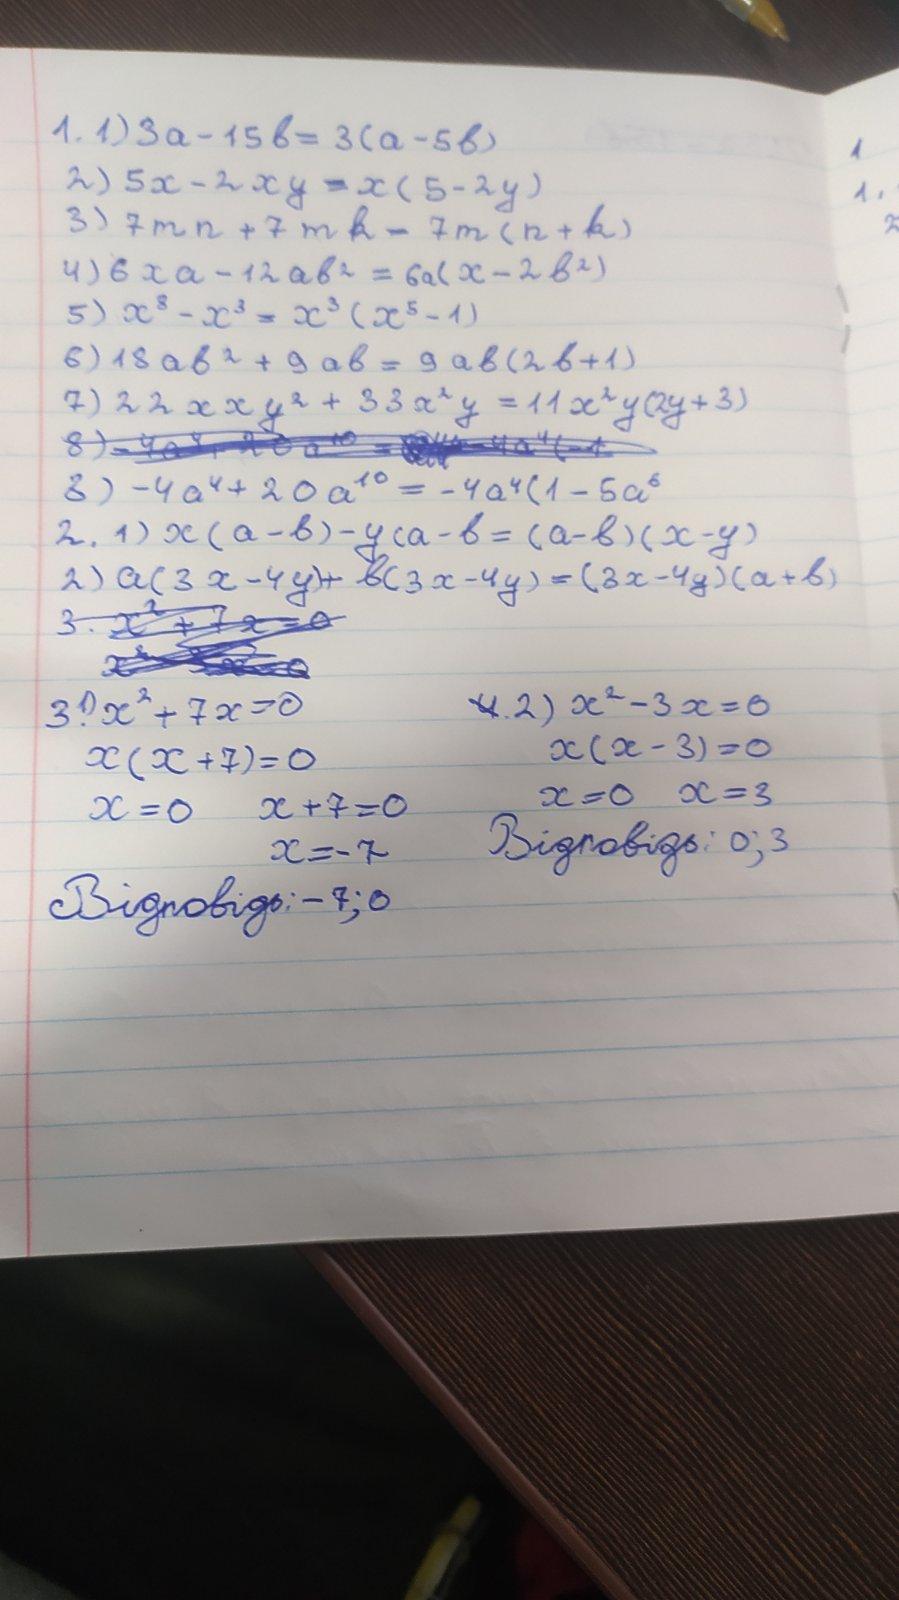 1. 1) 3a - 15b = 3(a - 5b)
2) 5x - 2xy = x(5 - 2y)
3) 7mn + 7mk = 7m(n + k)
4) 6xa - 12ab² = 6a(x - 2b²)
5) x⁸ - x³ = x³(x⁵ - 1)
6) 18ab² + 9ab = 9ab(2b + 1)
7) 22xxy² + 33x²y = 11x²y(2y + 3)
8) -4a⁴ + 20a¹⁰ = -4a⁴(-1
8) -4a⁴ + 20a¹⁰ = -4a⁴(1 - 5a⁶
2. 1) x(a - b) - y(a - b = (a - b)(x - y)
2) a(3x - 4y) + b(3x - 4y) = (3x - 4y)(a + b)
3. x² + 7x = 0
x² 3x = 0
3 1) x² + 7x = 0
x(x + 7) = 0
x = 0 x + 7 = 0
x = -7
Відповідь: -7; 0
2) x² - 3x = 0
x(x - 3) = 0
x = 0 x = 3
Відповідь: 0; 3
1
1.
2